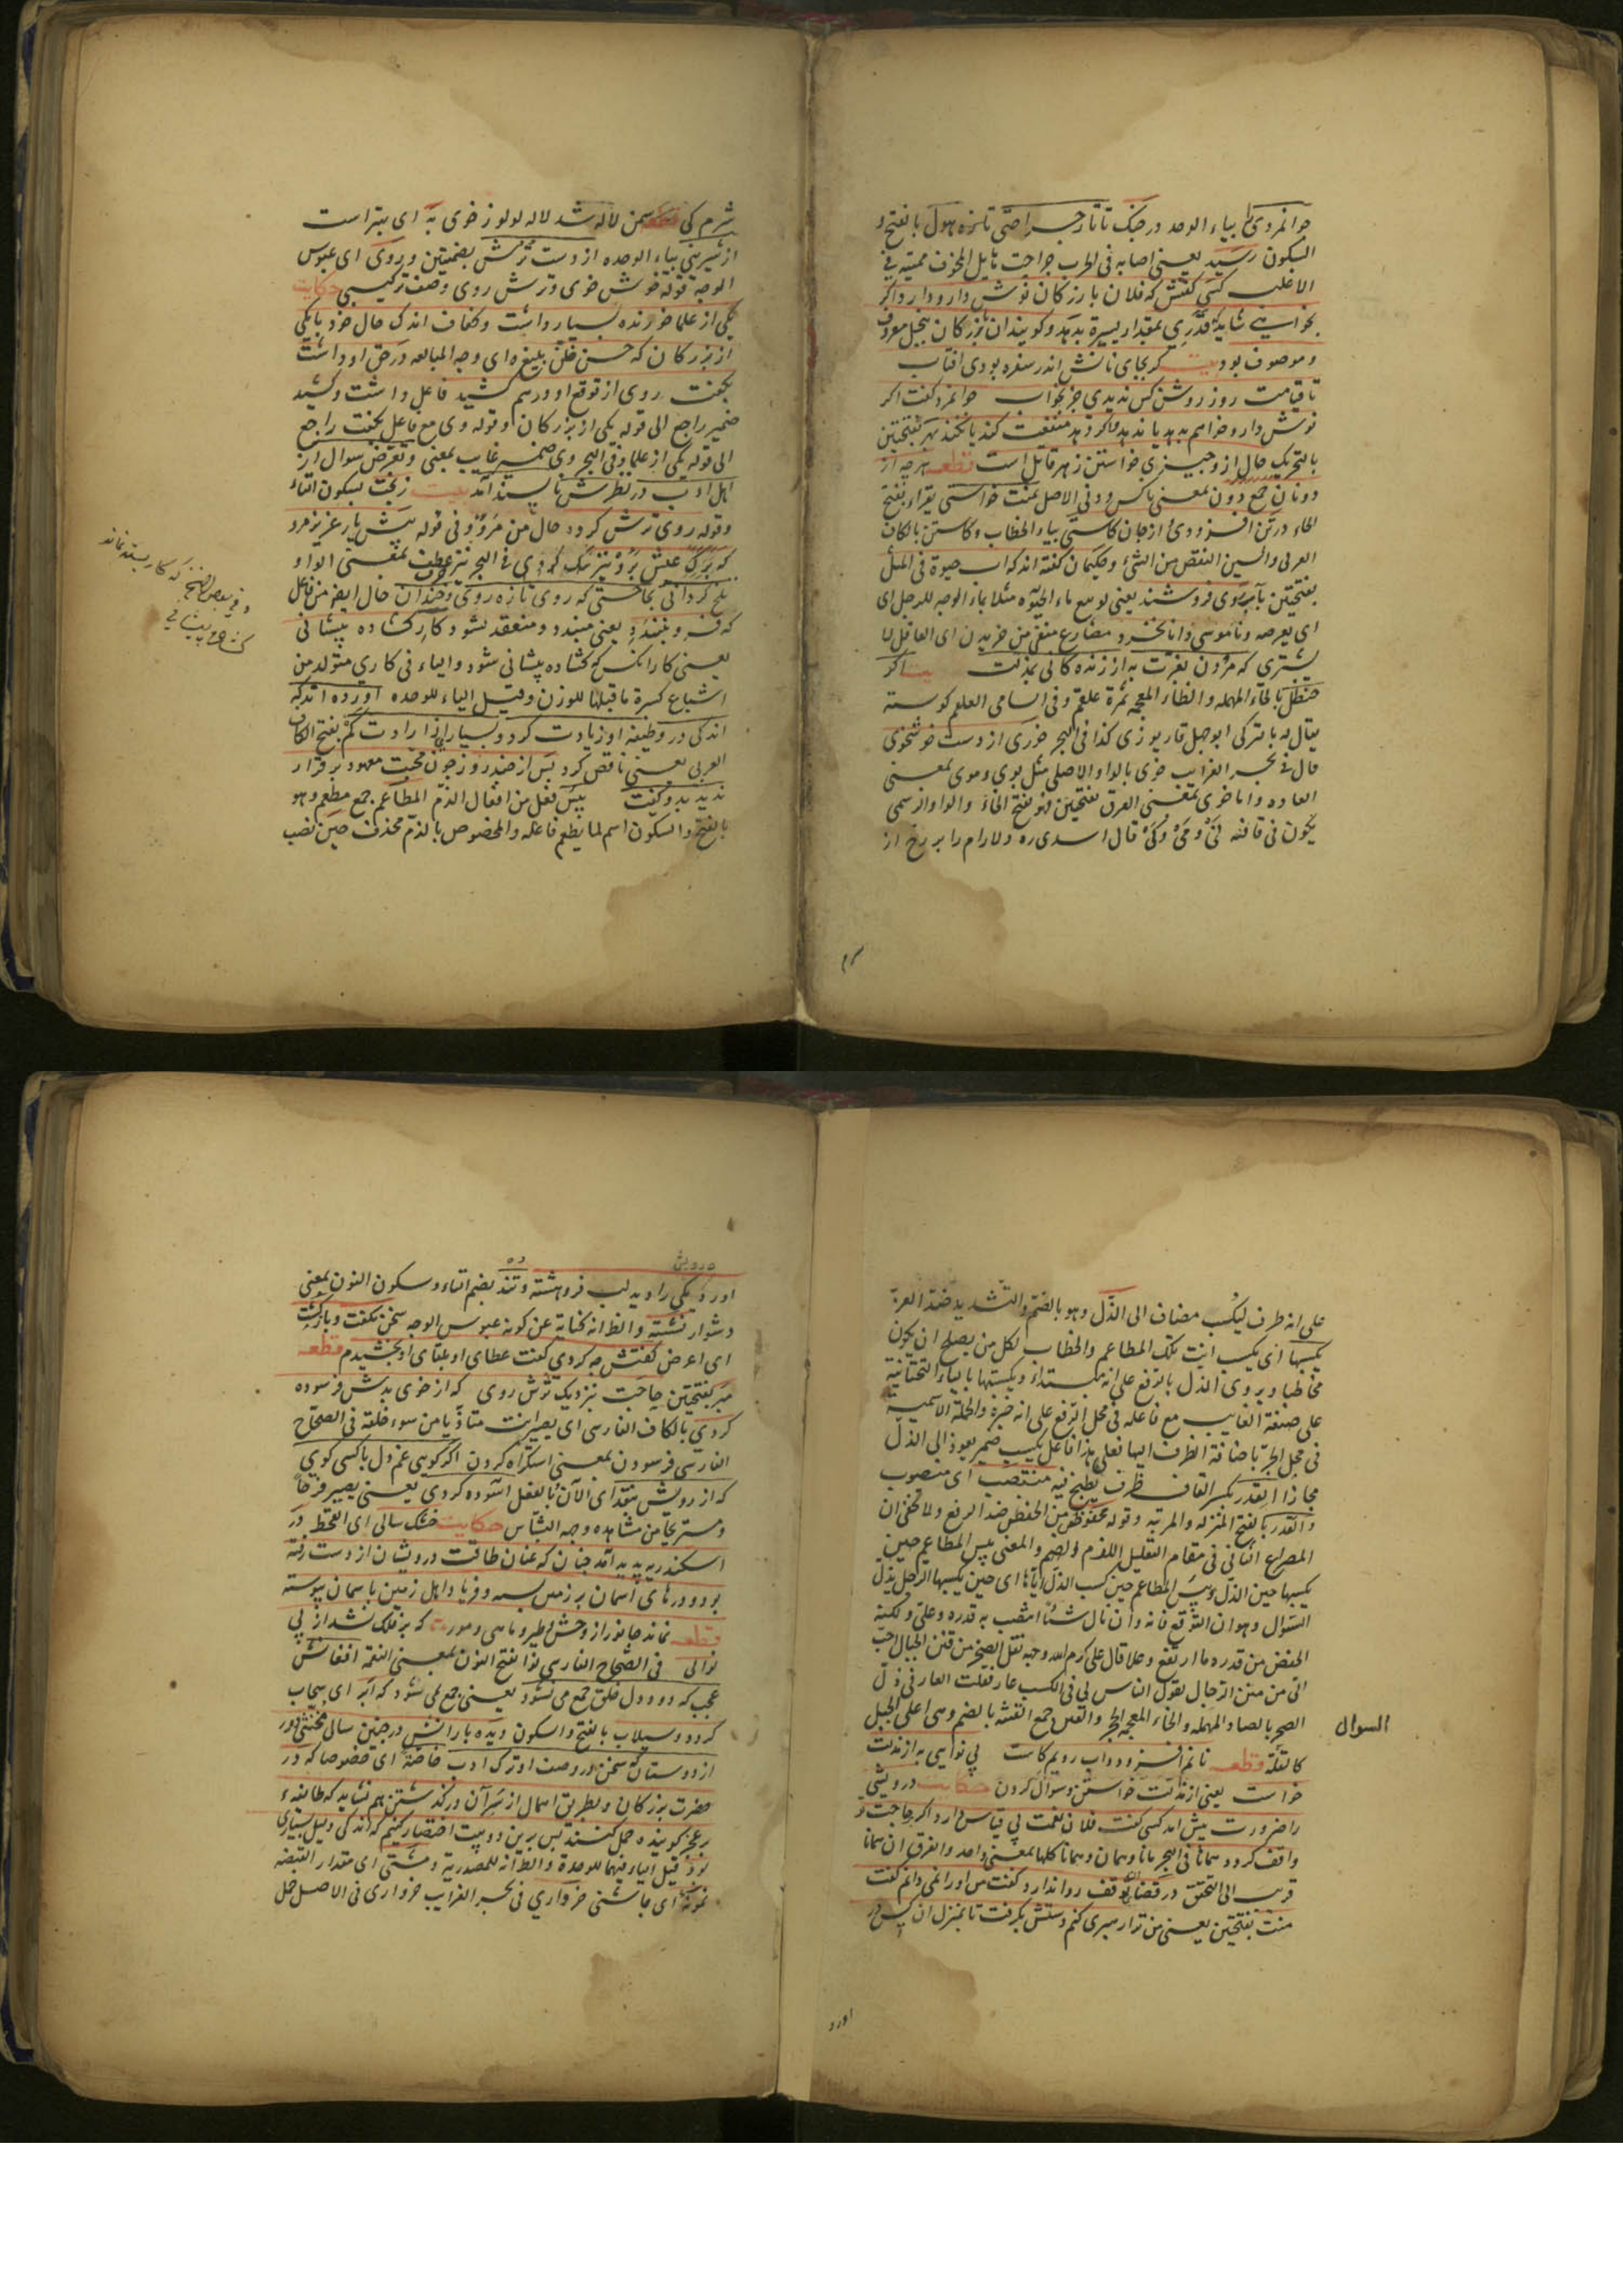 جوانمردی را بیاء الوحده در جنک تاتار جراحتی تازه هول بالفتح و
السکون رسید یعنی اصابه فی الحرب جراحت هایل المخوف ممیته فی
الاغلب کسی کفتش که فلان بازرکان نوش دارو دارد اکر
بخواهی شاید که قدری بمقدار یسیره بدهد و کویند ان بازرکان ببخل معروف
و موصوف بود بیت کر بجای نانش اندر سفره بودی افتاب
تا قیامت روز روشن کس ندیدی جز بخواب جوانمرد کفت اکر
نوش دارو خواهم بدهد یا ندهد و اکر دهد منفعت کند یا نکند بهر بفتحتین
بالتحریک حال ازو چیزی خواستن زهر قاتل است قطعه هر چه از
دونان جمع دون بمعنی ناکس و دنی الاصل بمنت خواستی یقراء بفتح
الخاء در تن افزودی از جان کاستی بیاء الخطاب و کاستن بالکاف
العربی والسین النقص من الشئ و حکیمان کفته اند که اب حیوة فی المثل
بفتحتین بآبروی فروشند یعنی لو بیع ماء الحیوة مثلا بماء الوجه للرجل ای
ای بعرضه و ناموسی دانا نخرد مضارع منفی من خریدن ای العاقل لا
یشتری که مردن بعزت به از زنده کانی بمذلت بیت اکر
حنظل بالحاء المهمله والظاء المعجمه ثمرة علقم و فی السامی العلقم کوسته
یقال له بالترکی ابوجهل قارپوزی کذا فی البحر خوری از دست خوشخوی
قال فی بحر الغرایب خوی بالواو الاصلی مثل بوی و موی بمعنی
العاده و اما خوی بمعنی العرق بفتحتین فهو بفتح الخاء والواو الرسمی
یکون فی قافیه لی و می و کی قال اسدی ره دلارام را بر رخ از
شرم کی قطعه سمن لاله شد لاله لولو ز خوی به ای بهتر است
از شیرینی بیاء الوحده از دست ترش بضمتین و روی ای عبوس
الوجه قوله خوش خوی و ترش روی وصف ترکیبی حکایت
یکی از علما خورنده بسیار داشت و کفاف اندک حال خود با یکی
از بزرکان که حسن ظن بلیغ ای وجه المبالغه در حق او داشت
بکفت روی از توقع او درهم کشید فاعل داشت و کشید
ضمیر راجع الی قوله یکی از بزرکان و قوله وی مع فاعل بکفت راجع
الی قوله یکی از علما و فی البحر وی ضمیر غایب بمعنی و تعرض سوال از
اهل ادب در نظرش ناپسند آمد بیت ز بخت بسکون التاء
و قوله روی ترش کرده حال من مرو و فی قوله پیش یار عزیز مرو
که عیش برو نیز تلخ کردانی
بحاجتی که روی تازه روی و خندان حال ایضا من فاعل
که فرو نبندد یعنی مبندد و منعقد نشود کار کشاده پیشانی
یعنی کار انکس که کشاده پیشانی شود والیاء فی کاری متولد من
اشباع کسرة ماقبلها للوزن و قیل الیاء للوحده آورده اند که
اندکی در وظیفه او زیادت کرد و بسیاری از ارادت کم بفتح الکاف
العربی یعنی ناقص کرد پس از چند روز چون محبت معهود برقرار
ندید بدو کفت بیس فعل من افعال الذم المطاعم جمع مطعم وهو
بالفتح والسکون اسم لما یطعم فاعله والمخصوص بالذم محذوف حین نصب
علی انه ظرف لیکسب مضاف الی الذل وهو بالضم والتشدید ضد العزة
یکسبها ای یکسب انت تلک المطاعم والخطاب لکل من یصلح ان یکون
مخاطبا و یروی الذل بالرفع علی انه مبتداء و یکسبها بالیاء التحتانیة
علی صیغة الغایب مع فاعله فی محل الرفع علی انه خبره والجملة الاسمیة
فی محل الجر باضافة الظرف الیها فعلی هذا فاعل یکسب ضمیر یعود الی الذل
مجازا القدر بکسر القاف ظرف یطبخ فیه منتصب ای منصوب
والقدر بالفتح المنزله والمرتبه و قوله مخفوض من الخفض ضد الرفع ولا یخفی ان
المصراع الثانی فی مقام التعلیل للذم والضم والمعنی بیس المطاعم حین
یکسبها حین الذل و بیس المطاعم حین کسب الذل ایاها ای حین یکسبها الرجل بذل
السوال وهوان التوقع فانه وان نال شیئا انتصب به قدره و علی ولکنه
انخفض من قدره ما ارتفع و علا قال علی کرم الله وجهه نقل الصخر من قنن الجبال احب
الی من منن الرجال یقول الناس لی فی الکسب عار فقلت العار فی ذل
السوال
الصخر بالصاد المهمله والخاء المعجمه الحجر والقنن جمع القنه بالضم وهی اعلی الجبل
کالقلة قطعه نانم افزود و اب رویم کاست بی نوایی به از مذلت
خواست یعنی از مذلت خواستن و سوال کردن حکایت درویشی
را ضرورت پیش امد کسی کفت فلان نعمت بی قیاس دارد اکر بر حاجت تو
واقف کردد همانا فی البحر مانا و همان و همانا کلها بمعنی واحد والفرق ان همانا
قریب الی التحقق در قضای ان توقف روا ندارد کفت من اورا نمی دانم کفت
منت بفتحتین یعنی من ترا رهبری کنم دستش بکرفت تا بمنزل ان کس در
اورد
آورد یکی را دید لب فروهشته و تند بضم التاء و سکون النون بمعنی
دشوار نشسته والظ انه کنایة عن کونه عبوس الوجه سخن نکفت و بازکشت
ای اعرض کفتش چه کردی کفت عطای او بلقای او بخشیدم قطعه
مبر بفتحتین حاجت بنزدیک ترش روی که از خوی بدش فرسوده
کردی بالکاف الفارسی ای یصیر انت متاذیا من سوء خلقه فی الصحاح
الفارسی فرسودن بمعنی استکراه کردن اکر کویی غم دل با کسی کوی
که از رویش بنقد ای الآن بالفعل آسوده کردی یعنی یصیر فرحا
و مستریحا من مشاهده وجه البشاس حکایت خشک سالی ای القحط در
اسکندریه پدید آمد چنان که عنان طاقت درویشان از دست رفته
بود و درهای آسمان بر زمین بسته و فریاد اهل زمین باسمان پیوسته
قطعه نماند جانور از وحش و طیر و ماهی و مور که بر فلک نشد از بی
نوایی فی الصحاح الفارسی نوا بفتح النون بمعنی النغمه افغانش
عجب که دود دل خلق جمع می نشود یعنی جمع نمی شود که ابر ای سحاب
کردد و سیلاب بالفتح والسکون دیده بارانش در چنین سال مخنثی دور
از دوستان که سخن در وصف او ترک ادب خاصة ای خصوصا که در
حضرت بزرکان و بطریق اهمال از سر آن درکذشتن هم نشاید که طایفه
بر عجز کوینده حمل کنند پس برین دو بیت اختصار کنیم که اندکی دلیل بسیاری
بود قیل الیاء فیهما للوحدة والظ انه للمصدریة و مشتی ای مقدار القبضه
نمونه ای جاشنی خرواری فی بحر الغرایب خرواری فی الاصل حمل